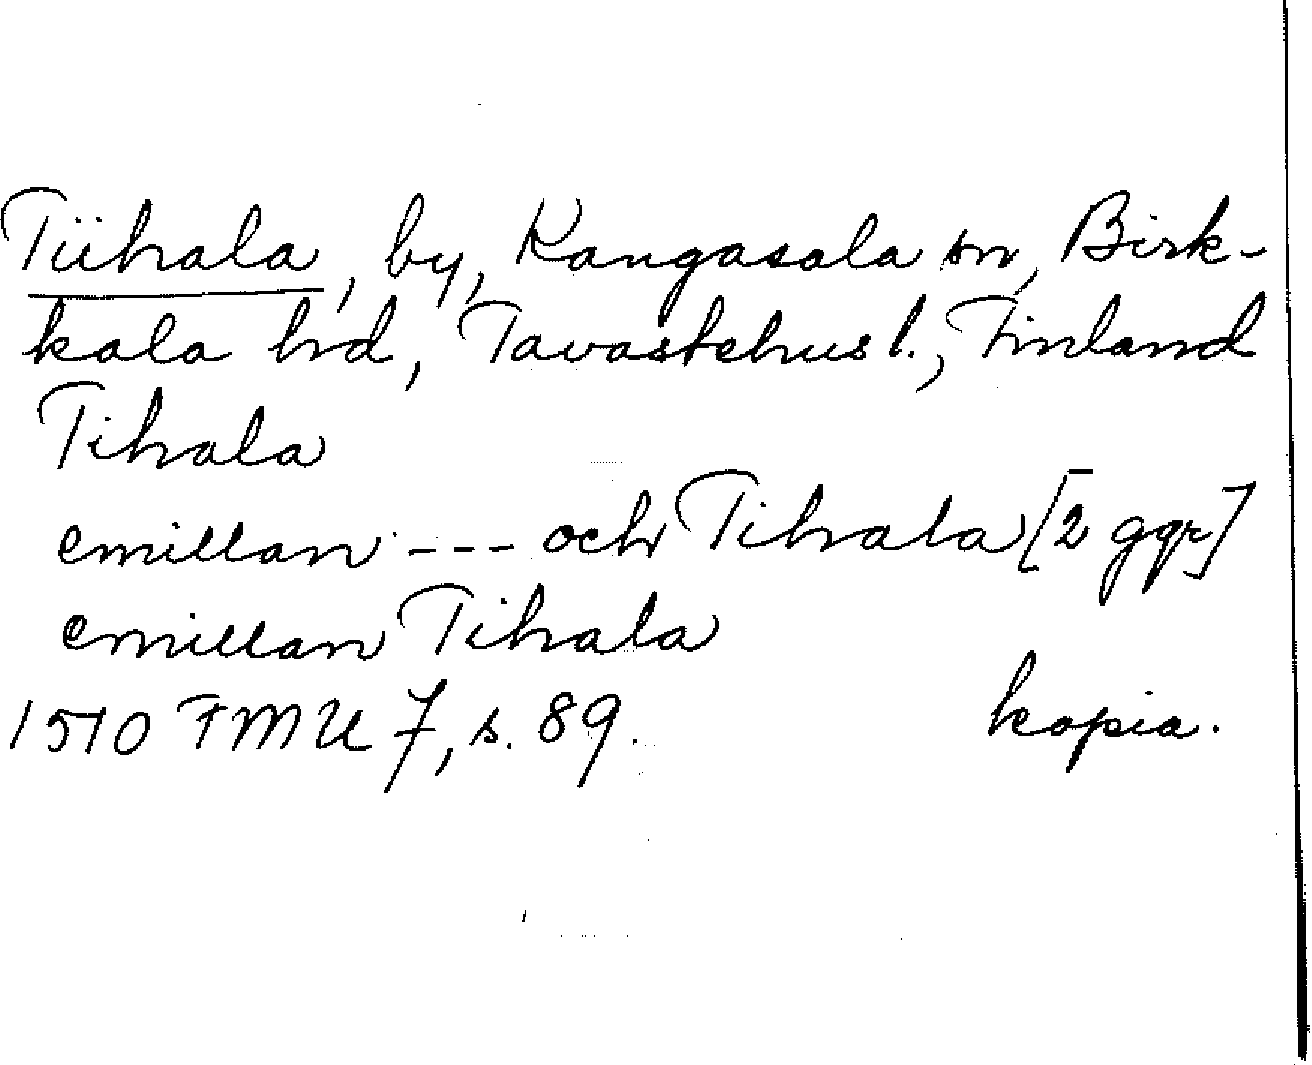 Tiihala, by, Kangasala sn, Birk-
kala hd, Tavastehus l., Finland
Tihala
emillan --- och Tihala [2 ggr]
emillan Tihala
1510 FMU 7, s. 89. kopia.